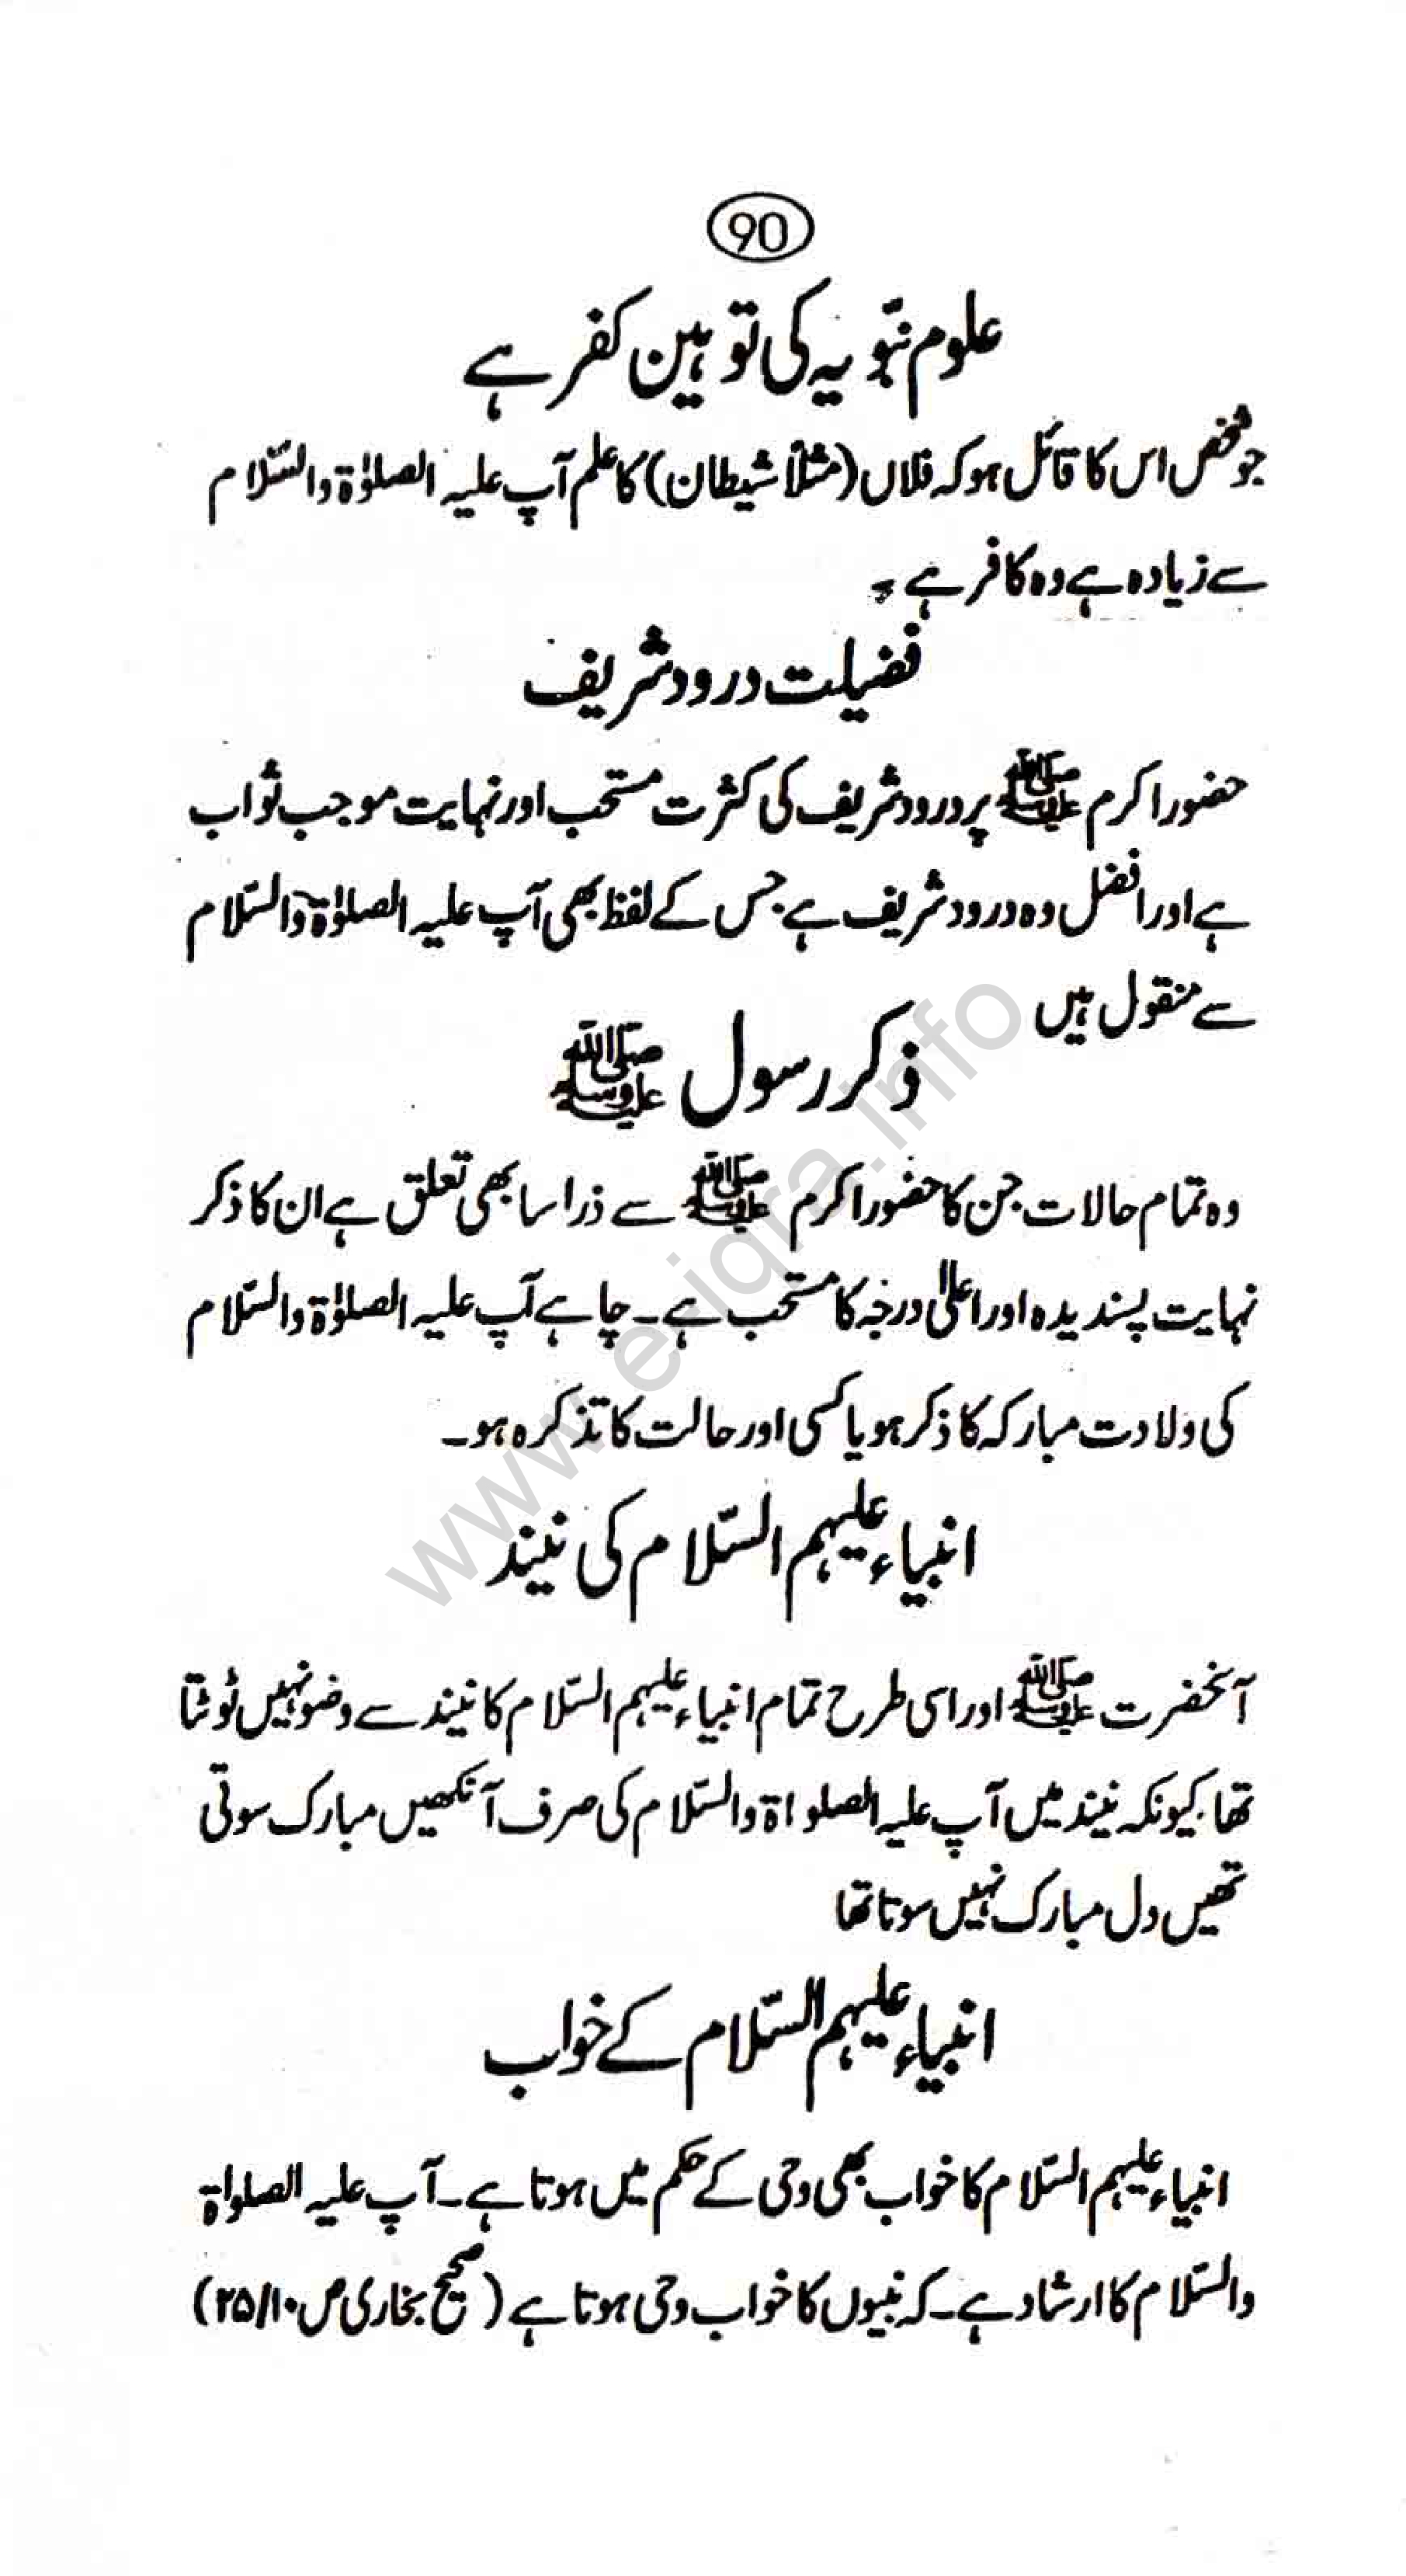 90
علوم نبّویہ کی توہین کفر ہے
جو شخص اس کا قائل ہو کہ فلاں (مثلاً شیطان) کا علم آپ علیہ الصلوٰۃ والسّلام
سے زیادہ ہے وہ کافر ہے۔
فضیلت درود شریف
حضور اکرم ﷺ پر درود شریف کی کثرت مستحب اور نہایت موجب ثواب
ہے اور افضل وہ درود شریف ہے جس کے لفظ بھی آپ علیہ الصلوٰۃ والسّلام
سے منقول ہیں
ذکر رسول ﷺ
وہ تمام حالات جن کا حضور اکرم ﷺ سے ذرا سا بھی تعلق ہے ان کا ذکر
نہایت پسندیدہ اور اعلیٰ درجہ کا مستحب ہے۔ چاہے آپ علیہ الصلوٰۃ والسّلام
کی ولادت مبارکہ کا ذکر ہو یا کسی اور حالت کا تذکرہ ہو۔
انبیاء علیہم السّلام کی نیند
آنحضرت ﷺ اور اسی طرح تمام انبیاء علیہم السّلام کا نیند سے وضو نہیں ٹوٹتا
تھا، کیونکہ نیند میں آپ علیہ الصلواۃ والسّلام کی صرف آنکھیں مبارک سوتی
تھیں دل مبارک نہیں سوتا تھا
انبیاء علیہم السّلام کے خواب
انبیاء علیہم السّلام کا خواب بھی وحی کے حکم میں ہوتا ہے۔ آپ علیہ الصلواۃ
والسّلام کا ارشاد ہے۔ کہ نبیوں کا خواب وحی ہوتا ہے (صحیح بخاری ص ۲۵/۱۰)
www.e-iqra.info